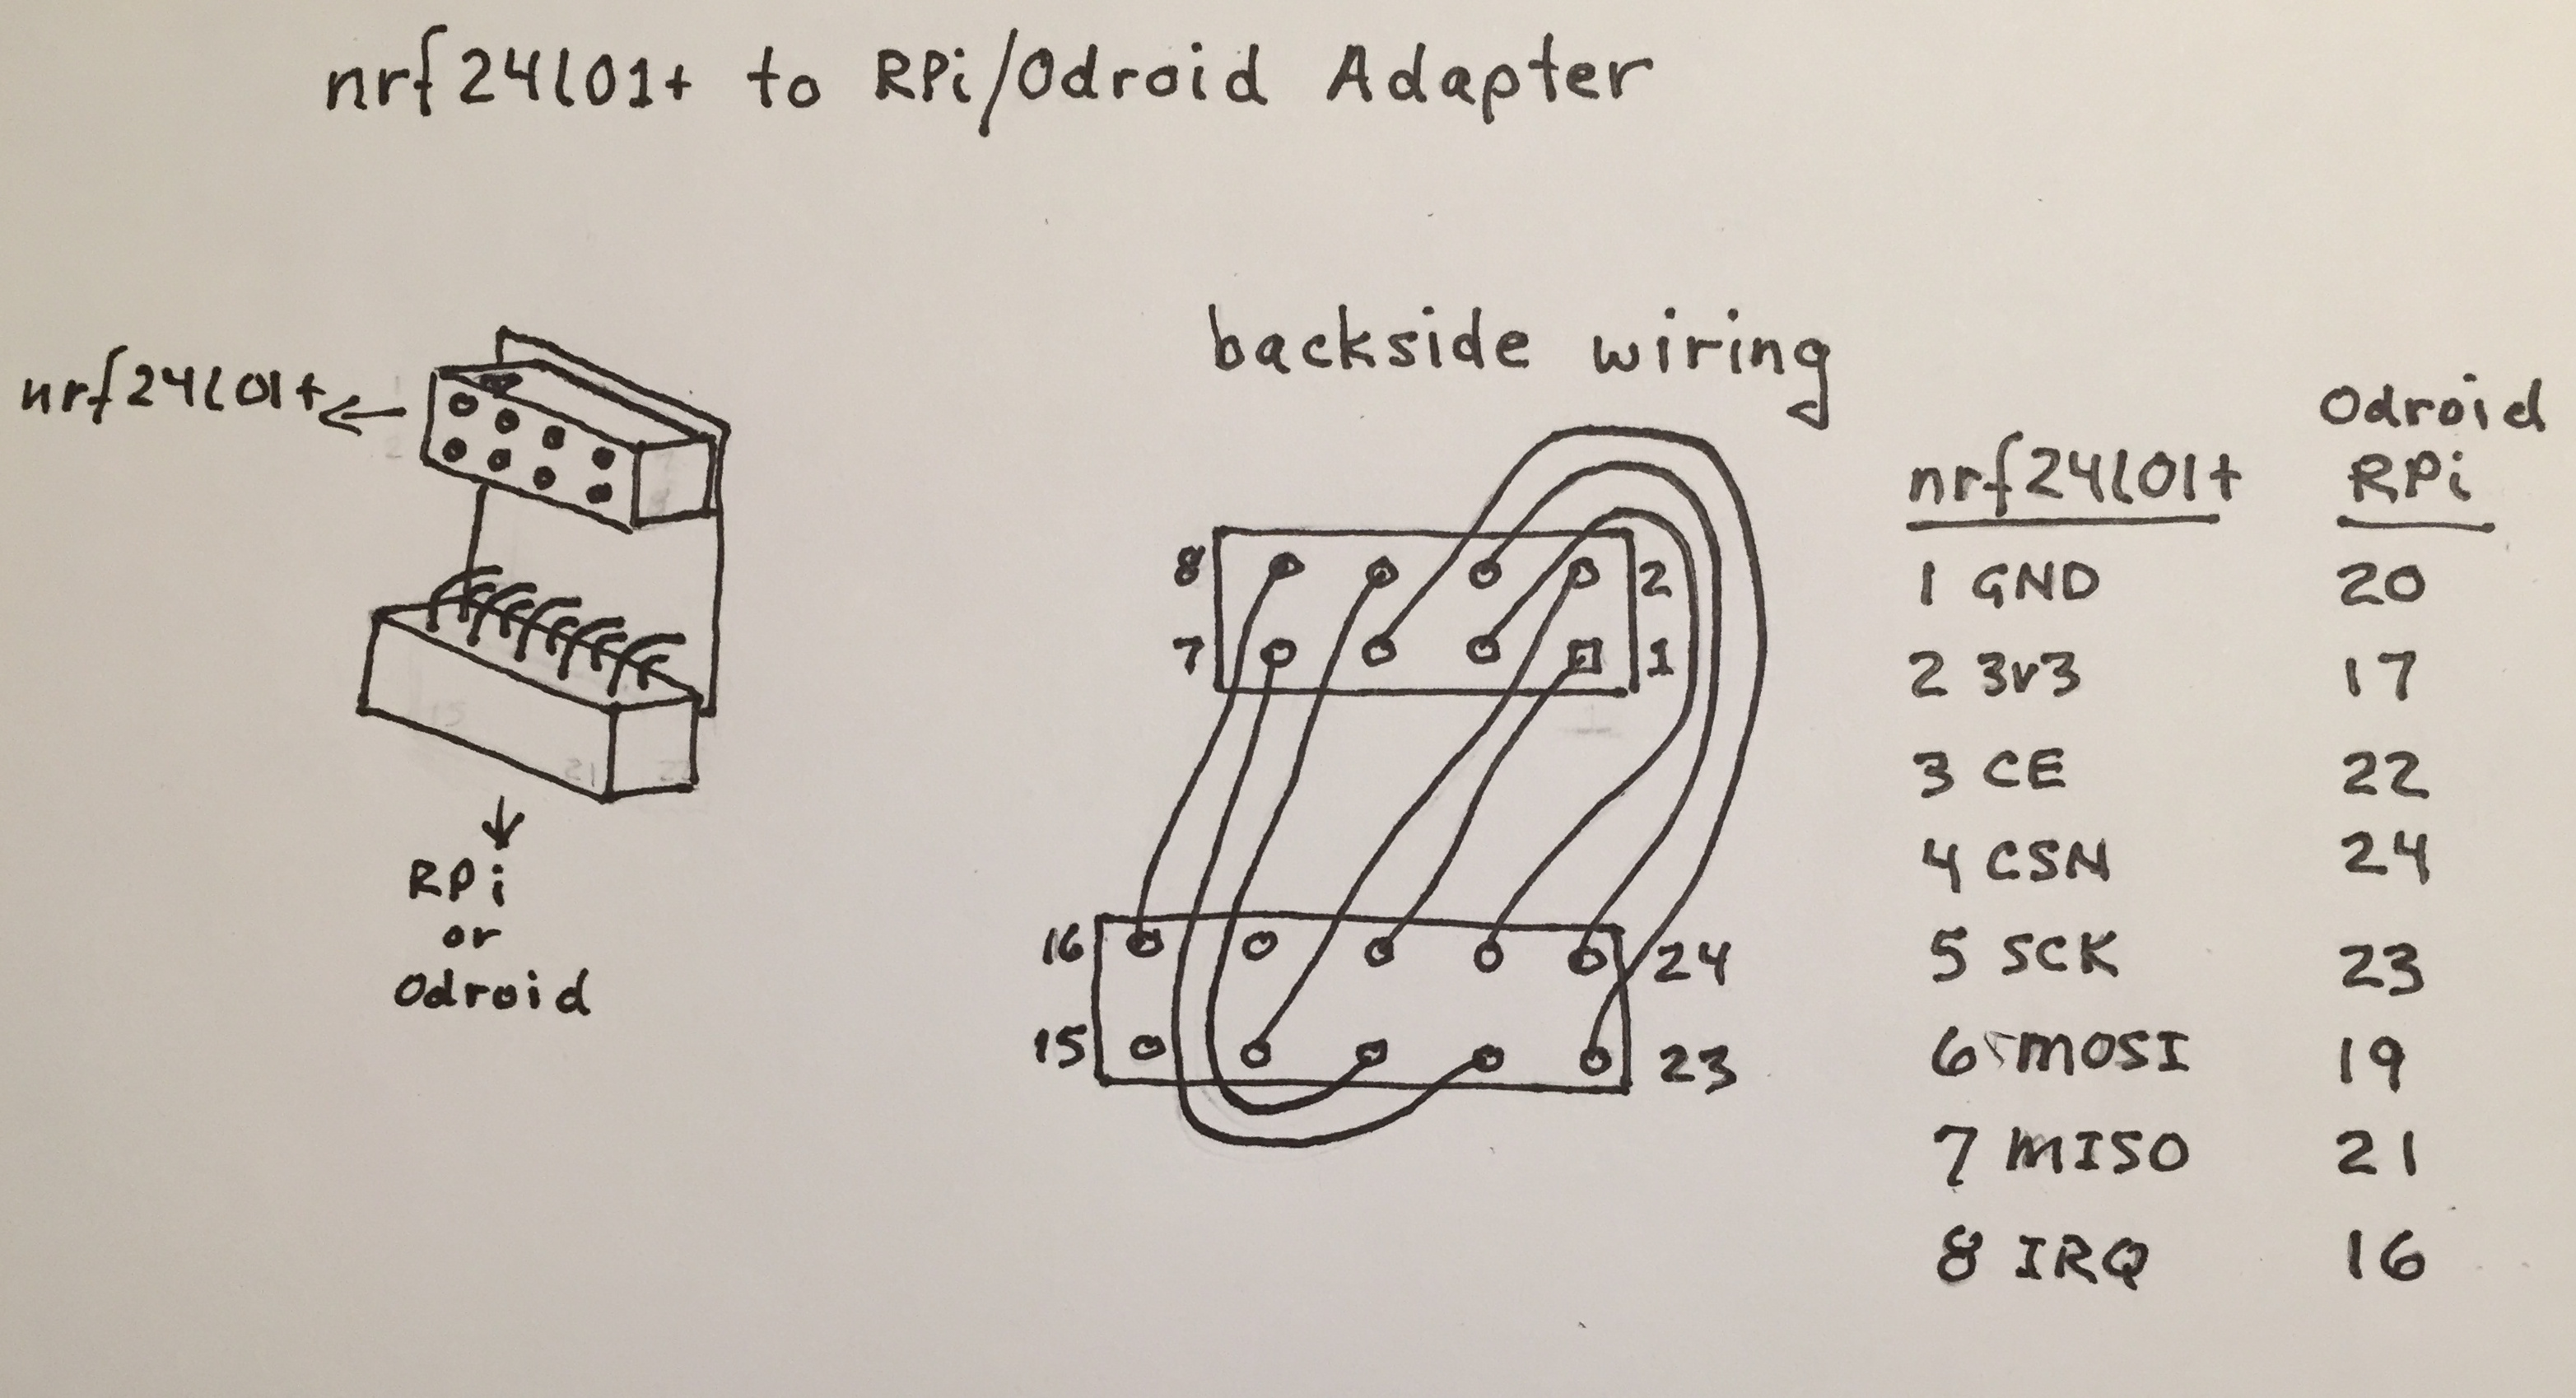 nrf24l01+ to RPi/Odroid Adapter
nrf24l01+ ←
RPi →
or
Odroid
backside wiring
8
7
2
1
16
15
24
23
nrf24l01+
Odroid
RPi
1 GND 20
2 3v3 17
3 CE 22
4 CSN 24
5 SCK 23
6 MOSI 19
7 MISO 21
8 IRQ 16